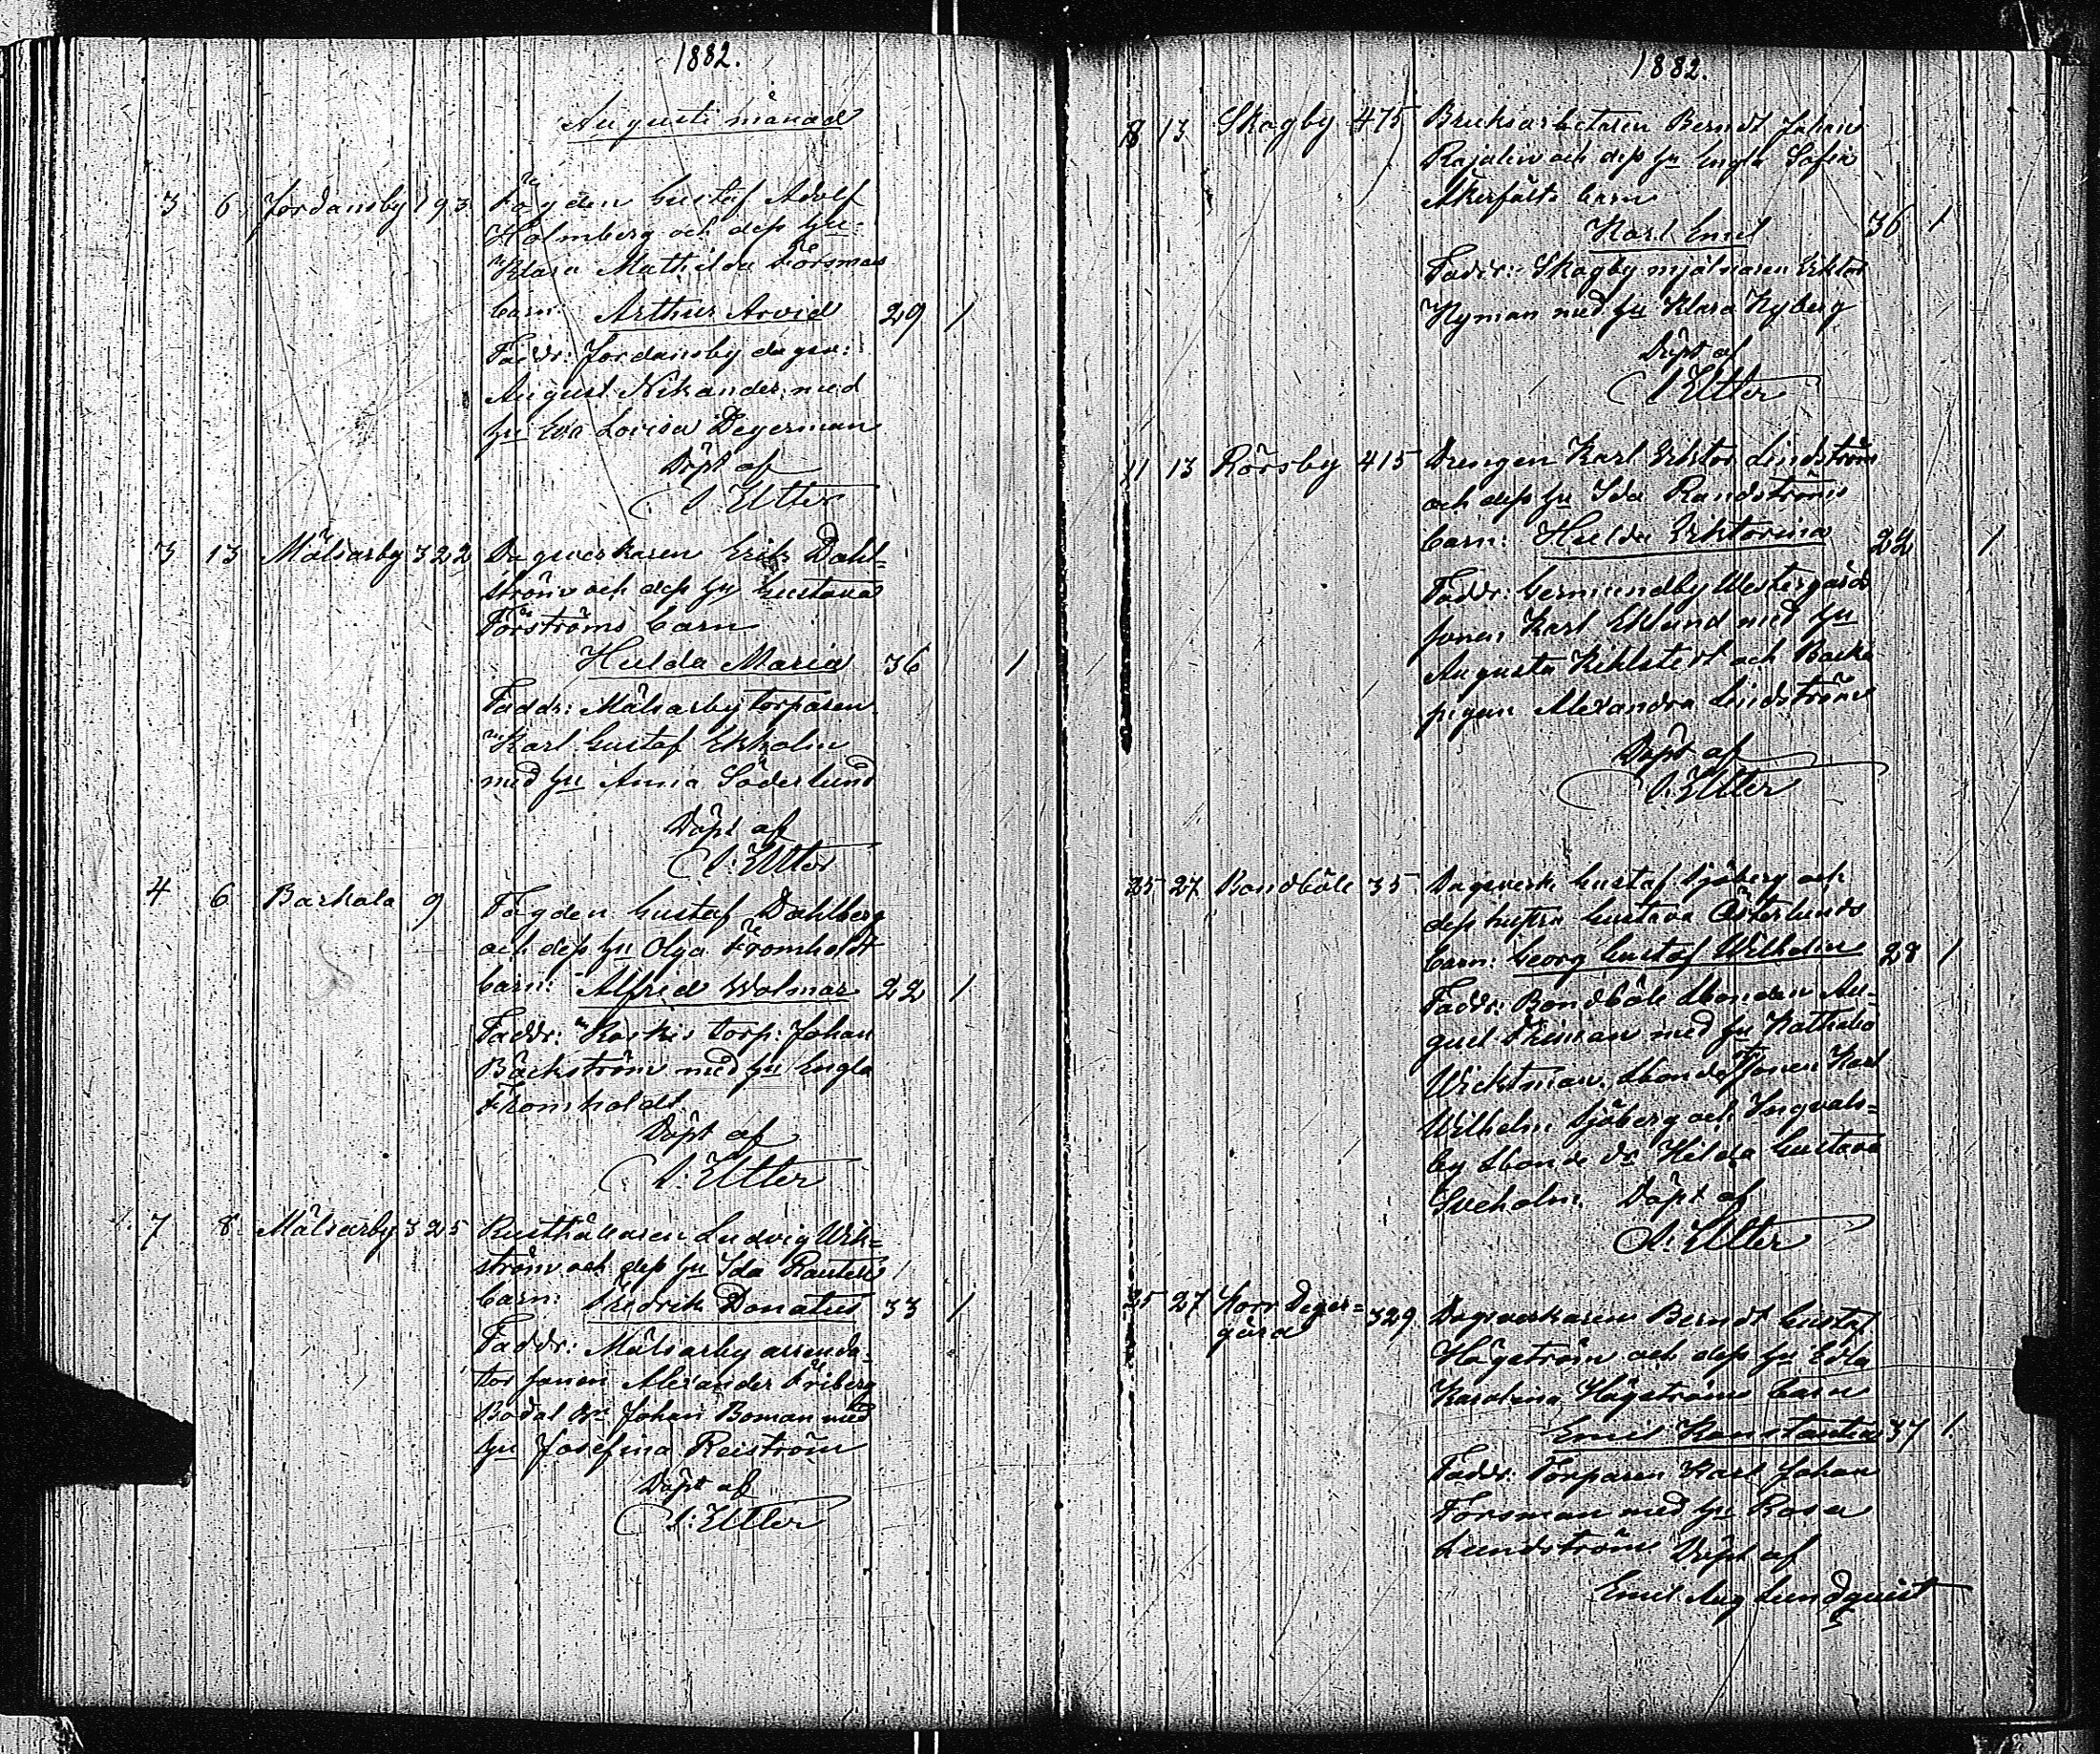 1882.
Augusti månad
3 6 Jordansby 193 Tågden Gustaf Adolf
Holmberg och dess hu
Klara Mathilda Forsmas
barn: Arthur Arvid 29 1
Faddr: Jordansby dagsv:
August Nikander med
hu Eva Lovisa Degerman
Döpt af
A: Etter
3 13 Målsarby 322 Dagsverkaren Erik Dahl=
ström och dess hu Gustava
Törströms barn
Hulda Maria 36 1
Faddr: Målsarby torparen
Karl Gustaf Ekholm
med hu Anna Söderlund
Döpt af
A: Etter
4 6 Barkala 9 Tågden Gustaf Dahlberg
och dess hu Olga Fromholdt
barn: Alfrid Wolmar 22 1
Faddr: Koskis torp: Johan
Bäckström med hu Engla
Fromholdt
Döpt af
A: Etter
7 8 Målsarby 325 Rusthållaren Ludvig Wik=
ström och dess hu Ida Rautell
barn: Fredrik Donatus 33 1
Faddr: Målsarby arrenda=
tor sonen Alexander Friberg
Bodal Johan Boman med
hu Josefina Reiström
Döpt af
A: Etter
1882.
8 13 Skogby 475 Bruksarbetaren Berndt Johan
Rajalin och dess hu Engla Sofia
Åkerfälts barn
Karl Emil 36 1
Faddr: Skogby mjölnaren Viktor
Nyman med hu Klara Nyberg
Döpt af
A: Etter
11 13 Rörsby 415 Drengen Karl Viktor Lindström
och dess hu Ida Randströms
barn: Hulda Viktorina 22 1
Faddr: Germundby Westergårds
sonen Karl Eklund med hu
Augusta Kihlstedt och Backa
pigan Alexandra Lindström
Döpt af
A: Etter
25 27 Bondböle 35 Dagsverk Gustaf Sjöberg och
dess hustru Gustava Österlunds
barn: Georg Gustaf Wilhelm 28 1
Faddr: Bondböle bonden Au=
gust med hu Mathilda
Wicktman, bonde sonen Karl
Wilhelm Sjöberg och Ingvals=
by bonde dr Hilda Gustava
Sveholm. Döpt af
A: Etter
25 27 Norr Deger=
gård 329 Dagsverkaren Berndt Gustaf
Högström och dess hu Edla
Karolina Högströms barn
Emil Konstantin 37 1
Faddr: Torparen Karl Johan
Forsman med hu Rosa
Lundström Döpt af
Emil Aug Lundqvist